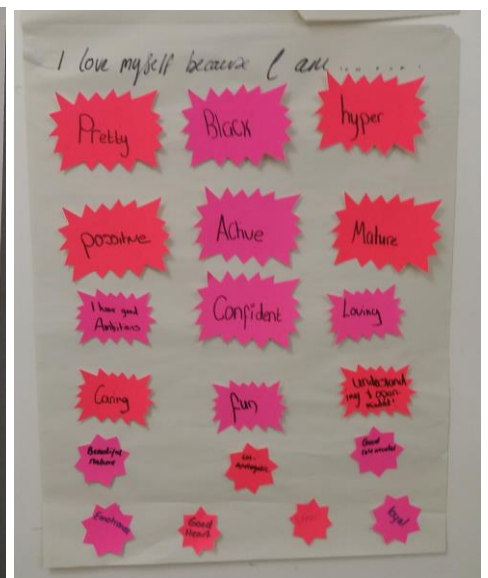 I love myself because I am.......
Pretty
Black
hyper
possitive
Active
Mature
I have good
Ambitions
Confident
Loving
Caring
fun
understand
ing & open
minded!
Beautiful
Good
Emotional
Good
Heart
loyal